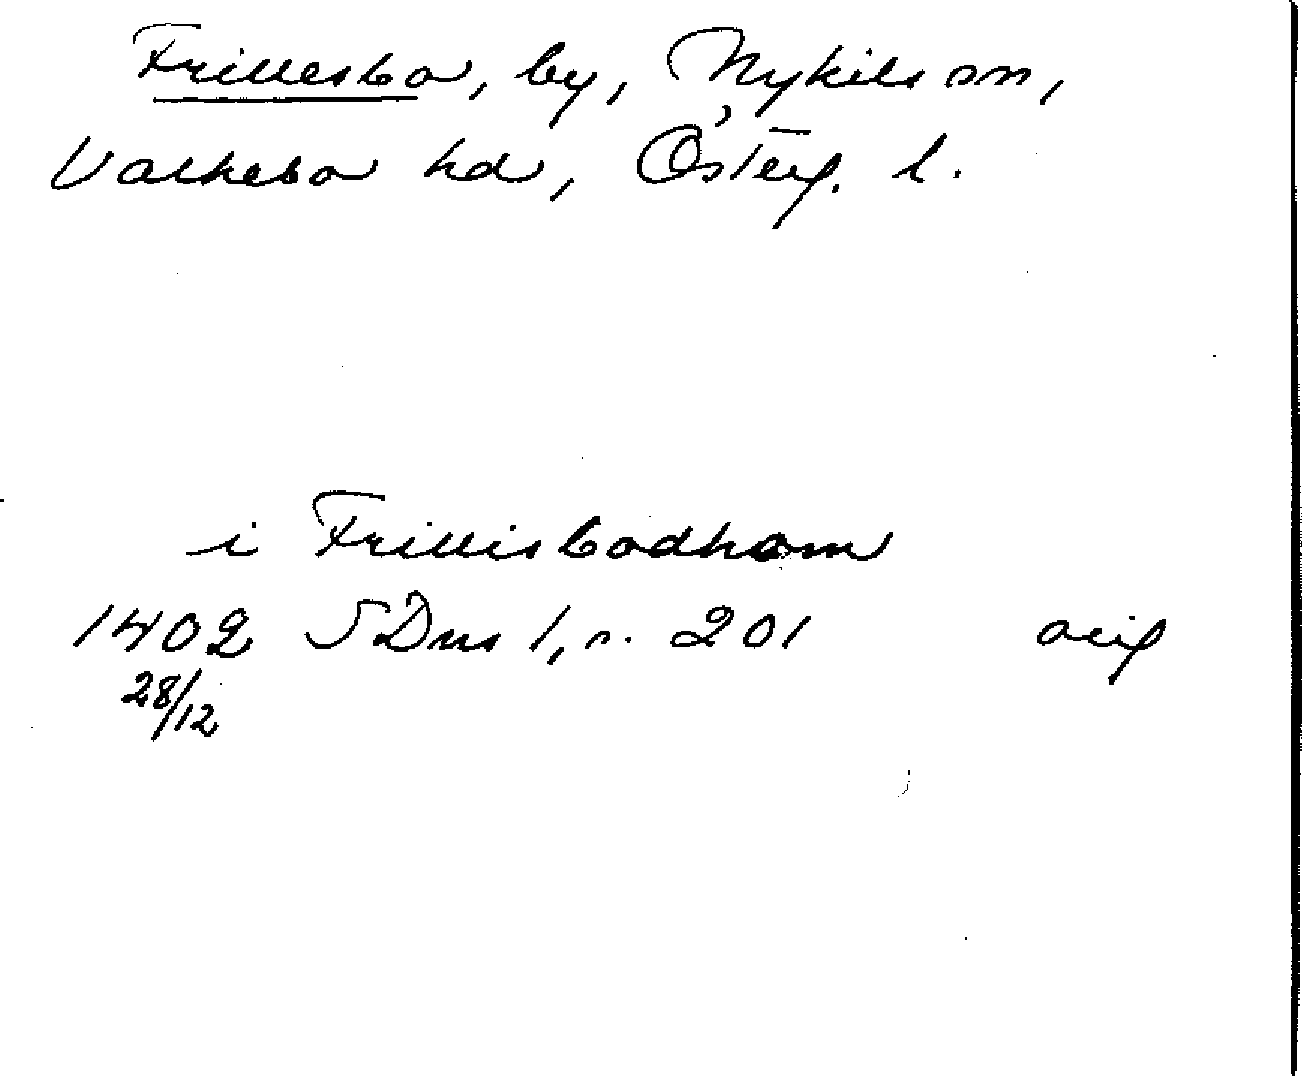 Frillesbo, by, Nykils sn,
Valkebo hd, Österg. l.
i Frillisbodhom
1402 SDns 1, s. 201 orig
28/12